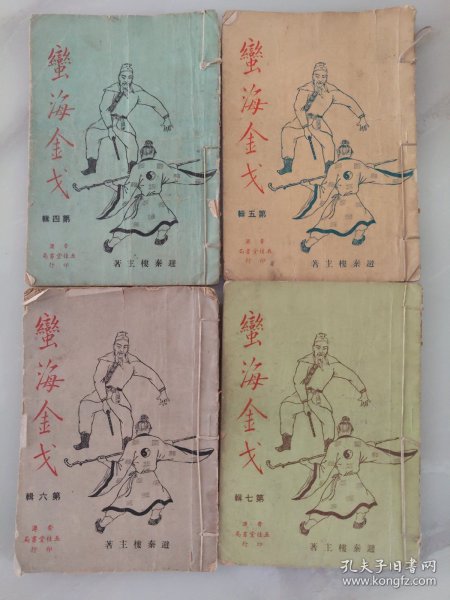 蠻海金戈
第四輯
避秦樓主著
香港
五桂堂書局
印行
蠻海金戈
第五輯
避秦樓主著
香港
五桂堂書局
印行
蠻海金戈
第六輯
避秦樓主著
香港
五桂堂書局
印行
蠻海金戈
第七輯
避秦樓主著
香港
五桂堂書局
印行
孔夫子旧书网